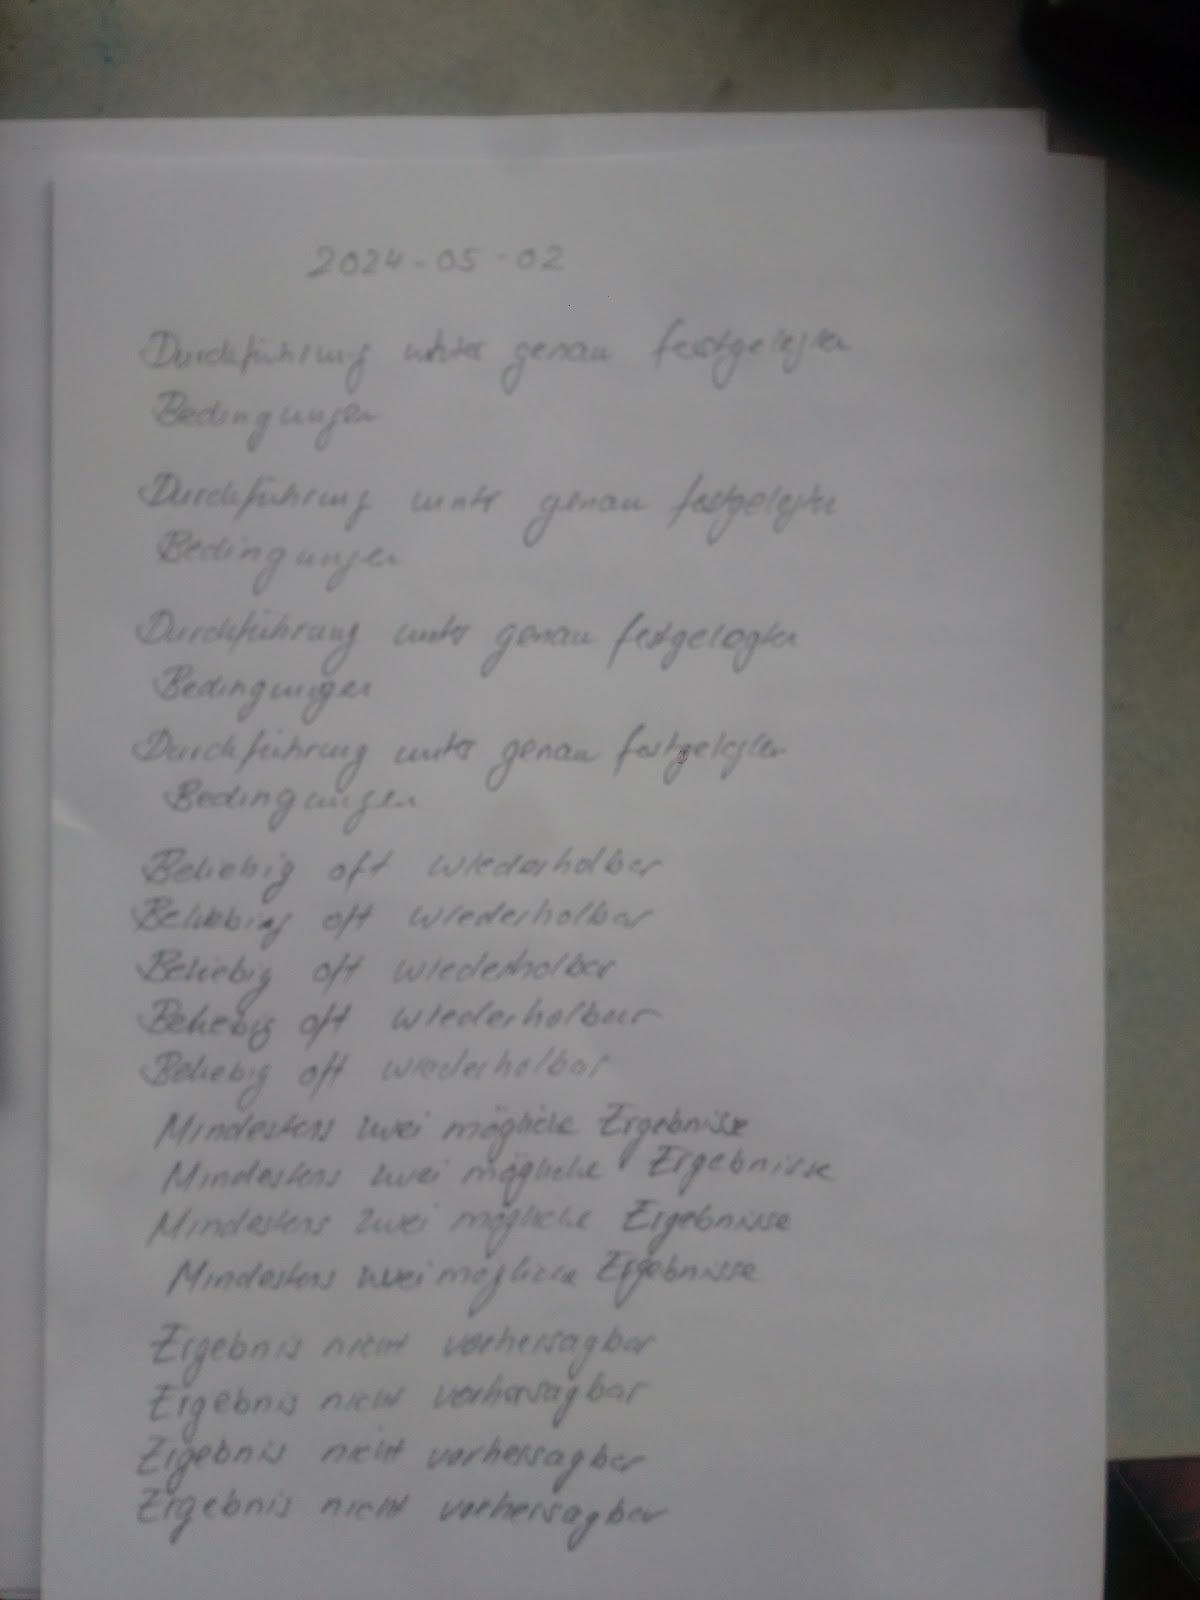 2024-05-02
Durchführung unter genau festgelegten
Bedingungen
Durchführung unter genau festgelegten
Bedingungen
Durchführung unter genau festgelegten
Bedingungen
Durchführung unter genau festgelegten
Bedingungen
Beliebig oft wiederholbar
Beliebig oft wiederholbar
Beliebig oft wiederholbar
Beliebig oft wiederholbar
Beliebig oft wiederholbar
Mindestens zwei mögliche Ergebnisse
Mindestens zwei mögliche Ergebnisse
Mindestens zwei mögliche Ergebnisse
Mindestens zwei mögliche Ergebnisse
Ergebnis nicht vorhersagbar
Ergebnis nicht vorhersagbar
Ergebnis nicht vorhersagbar
Ergebnis nicht vorhersagbar